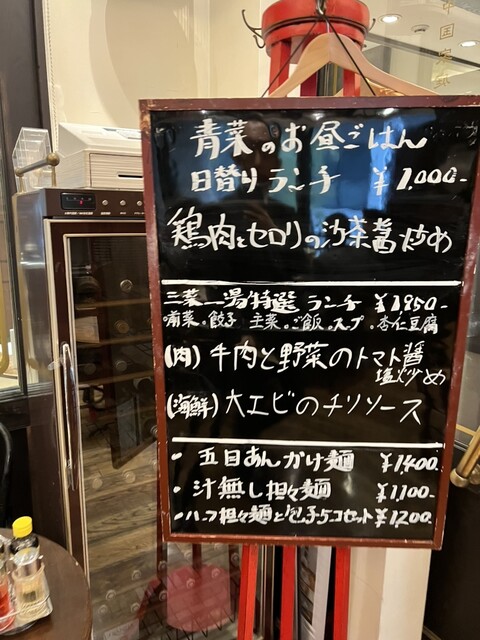 青菜のお昼ごはん
日替りランチ ¥1,000-
鶏肉とセロリの沙茶醤炒め
三菜一湯特選ランチ ¥1950-
前菜。餃子 主菜。ご飯。スープ。杏仁豆腐
(肉) 牛肉と野菜のトマト醤
塩炒め
(海鮮) 大エビのチリソース
・五目あんかけ麺 ¥1,400-
・汁無し担々麺 ¥1,100-
・ハーフ担々麺と包子5コセット ¥1,200-